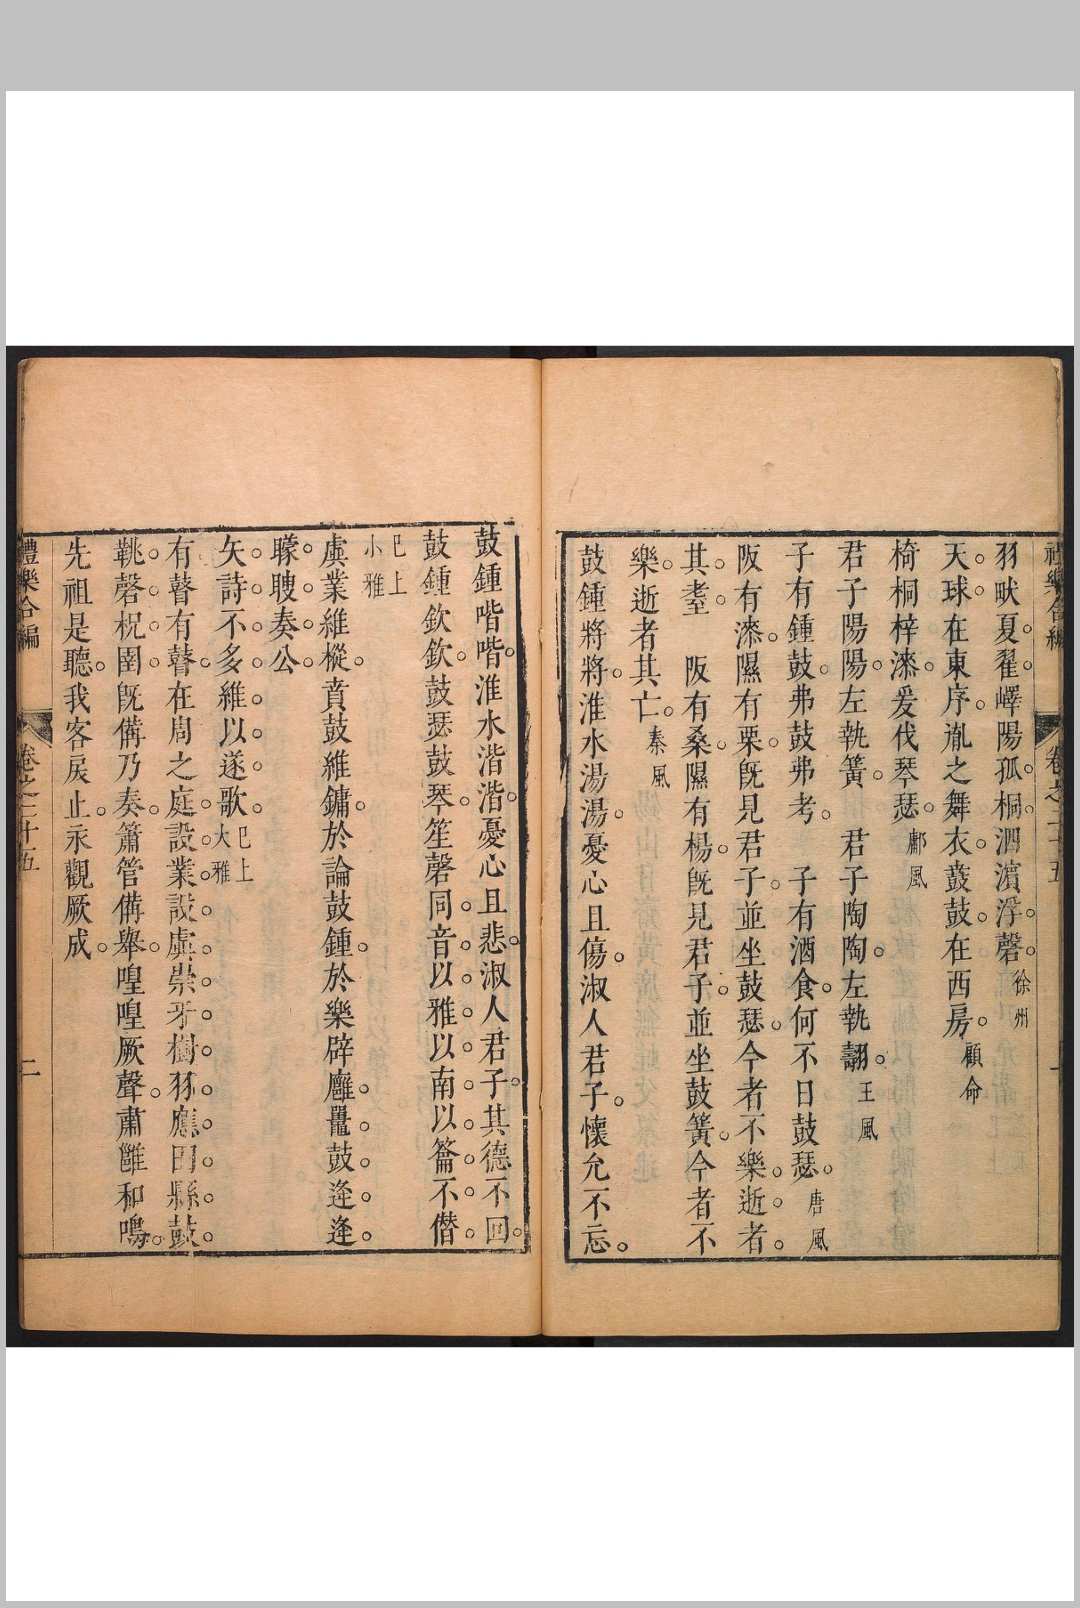 禮樂合編 卷之二十五 一
羽畎夏翟嶧陽孤桐泗濱浮磬徐州
天球在東序胤之舞衣鼖鼓在西房顧命
椅桐梓漆爰伐琴瑟鄘風
君子陽陽左執簧 君子陶陶左執翿王風
子有鍾鼓弗鼓弗考 子有酒食何不日鼓瑟唐風
阪有漆隰有栗旣見君子並坐鼓瑟今者不樂逝者
其耋 阪有桑隰有楊旣見君子並坐鼓簧今者不
樂逝者其亡秦風
鼓鍾將將淮水湯湯憂心且傷淑人君子懷允不忘
鼓鍾喈喈淮水湝湝憂心且悲淑人君子其德不回
鼓鍾欽欽鼓瑟鼓琴笙磬同音以雅以南以籥不僭
已上小雅
虡業維樅賁鼓維鏞於論鼓鍾於樂辟廱鼉鼓逢逢
矇瞍奏公
矢詩不多維以遂歌已上大雅
有瞽有瞽在周之庭設業設虡崇牙樹羽應田縣鼓
鞉磬柷圉旣備乃奏簫管備舉喤喤厥聲肅雝和鳴
先祖是聽我客戾止永觀厥成
禮樂合編 卷之二十五 二